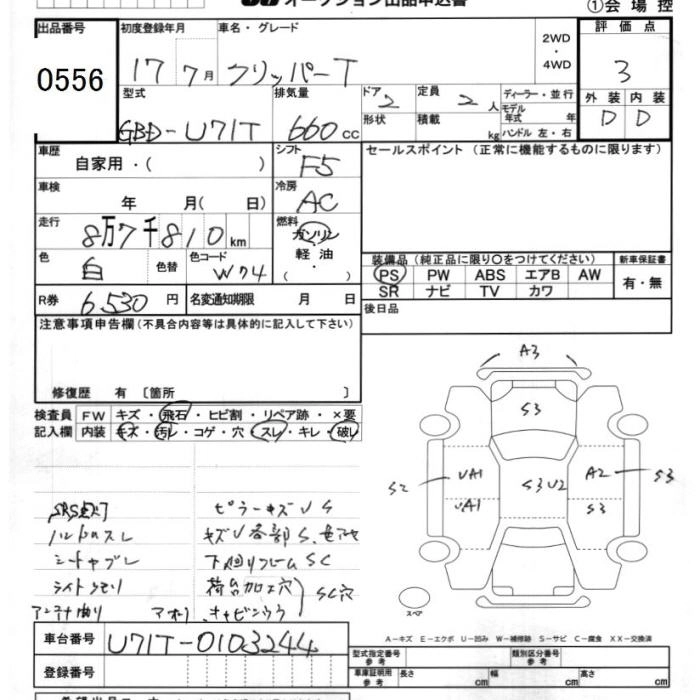 オークション出品申込書
①会場控
出品番号 初度登録年月 車名・グレード 2WD・4WD 評価点
0556 17年 7月 クリッパーT 3
型式 排気量 ドア 2 定員 2人 ディーラー・並行 外装 内装
GBD-U71T 660cc 形状 積載 kg モデル年式 年 D D
ハンドル 左・右
車歴 自家用・( ) シフト F5 セールスポイント (正常に機能するものに限ります)
車検 年 月( 日) 冷房 AC
走行 8万7千810km 燃料 ガソリン・軽油・( )
色 白 色替 色コード W74
装備品 (純正品に限り○をつけてください) 新車保証書
PS PW ABS エアB AW 有・無
SR ナビ TV カワ
R券 6,530円 名変通知期限 月 日 後日品
注意事項申告欄 (不具合内容等は具体的に記入して下さい)
修復歴 有 〔箇所 〕
検査員 FW キズ・飛石・ヒビ割・リペア跡・×要
記入欄 内装 キズ・汚レ・コゲ・穴・スレ・キレ・破レ
A3
S3
S2 UA1 S3U2 A2 S3
UA1 S3
スペア
SRS点灯 ピラーキズUS
ハンドルスレ キズU各部S
シートヤブレ 下回りフレームSC
ライトクモリ 荷台加工穴 SC穴
アンテナ曲り アオリ キャビンウラ
A-キズ E-エクボ U-凹み W-補修跡 S-サビ C-腐食 XX-交換済
車台番号 U71T-0103244
登録番号
型式指定番号 参考 類別区分番号 参考
車庫証明用 参考 長さ cm 幅 cm 高さ cm